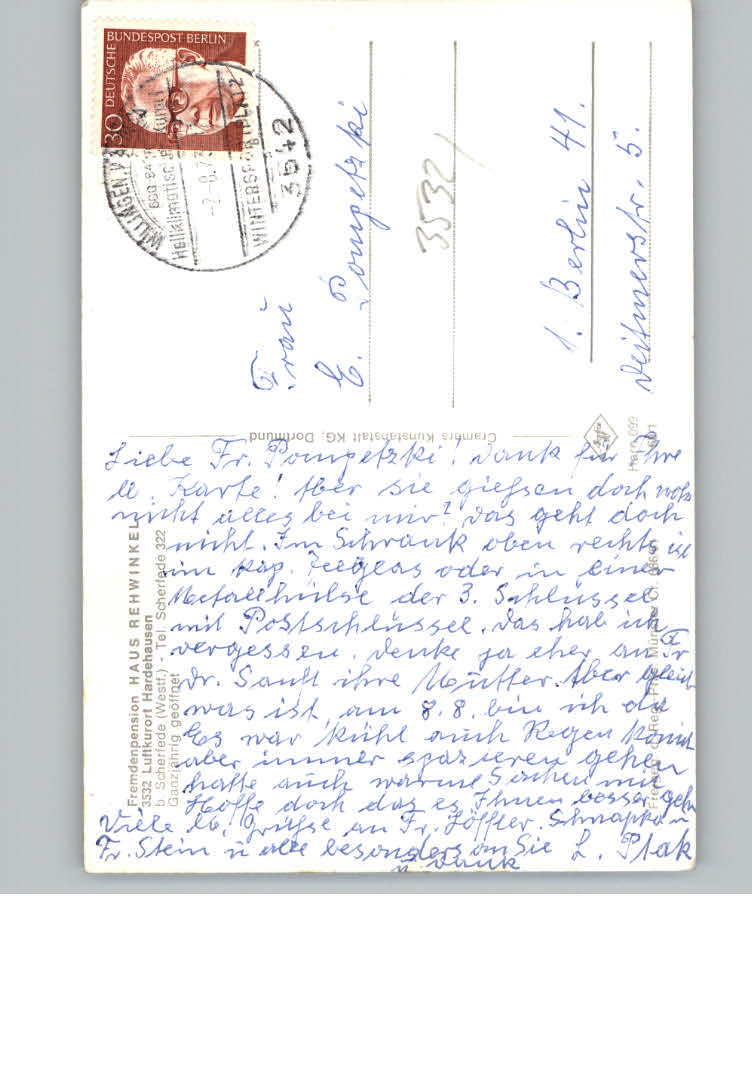 DEUTSCHE BUNDESPOST BERLIN
30
WILLINGEN
Heilklimatischer Kurort
WINTERSPORTPLATZ
3542
Frau
E. Pompetzki
3532
1. Berlin 41.
Deitmerstr. 5.
Cramers Kunstanstalt KG, Dortmund
Fremdenpension HAUS REHWINKEL
3532 Luftkurort Hardehausen
b. Scherfede (Westf.) - Tel. Scherfede 322
Ganzjährig geöffnet
Liebe Fr. Pompetzki! Dank für Ihre
lb. Karte! Aber sie giessen doch wohl
nicht alles bei mir? Das geht doch
nicht. Im Schrank oben rechts ist
im Teeglas oder in einer
Metallhülse der 3. Schlüssel
mit Postschlüssel. Das hab ich
vergessen. Denke ja eher an Fr
Dr. ihre Mutter. Aber gleich
was ist, am 8.8. bin ich da
Es war kühl auch Regen konnt
aber immer spazieren gehen
hatte auch warme Sachen mit
Hoffe doch das es Ihnen besser geht
Viele lb. Grüsse an Fr. Löffler. Schnapka u
Fr. Stein u alle besonders an Sie L. Ptak
u. Dank